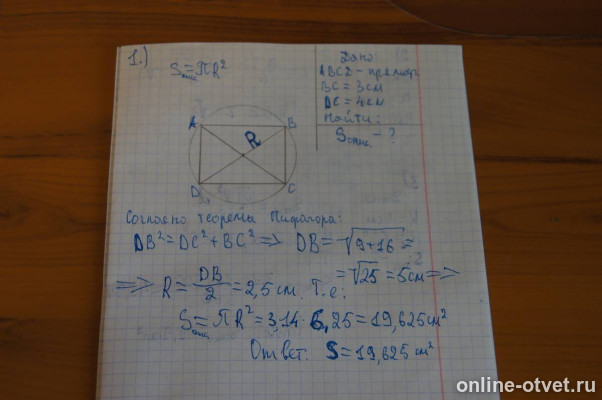 1.)
Sопис = πR²
A
B
R
D
C
Дано:
ABCD - прямоуг.
BC = 3см
DC = 4см
Найти:
Sопис. - ?
Согласно теоремы Пифагора:
DB² = DC² + BC² => DB = √9+16 =
= √25 = 5см =>
=> R = DB/2 = 2,5 см. Т.е:
Sопис = πR² = 3,14 · 6,25 = 19,625 см²
Ответ: S = 19,625 см²
online-otvet.ru